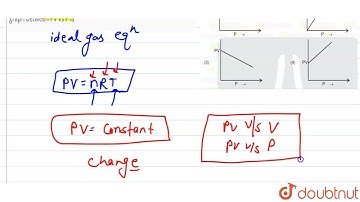 ideal gas eqn
PV = nRT
PV = Constant
change
PV v/s V
PV v/s P
P →
P →
(3)
PV
P →
(4)
PV
P →
doubtnut